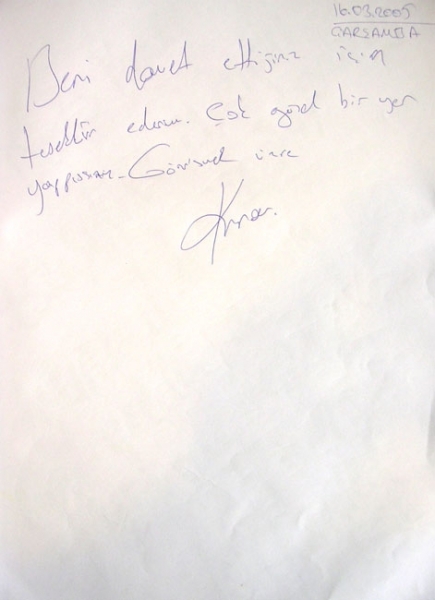 16.03.2005
ÇARŞAMBA
Beni davet ettiğiniz için
teşekkür ederim. Çok güzel bir yer
yapmışsınız. Görüşmek üzere